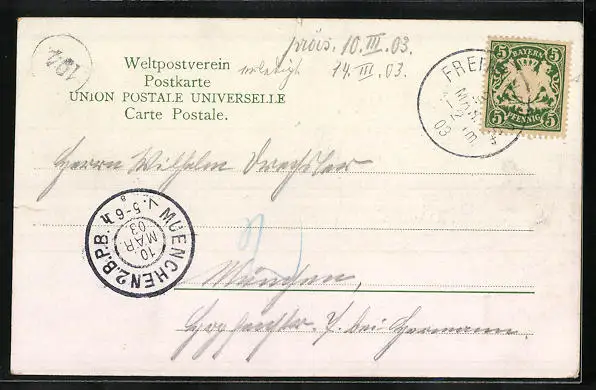 präs. 10. III. 03.
erledigt 14. III. 03.
104
Weltpostverein
Postkarte
UNION POSTALE UNIVERSELLE
Carte Postale.
BAYERN
5 5
5 PFENNIG 5
FREI
MAR.
03
Herrn Wilhelm Drechsler
MUENCHEN 2. B.P.B.
V. 5-6 h
10.
MAR
03.
München,
bei Hermann.